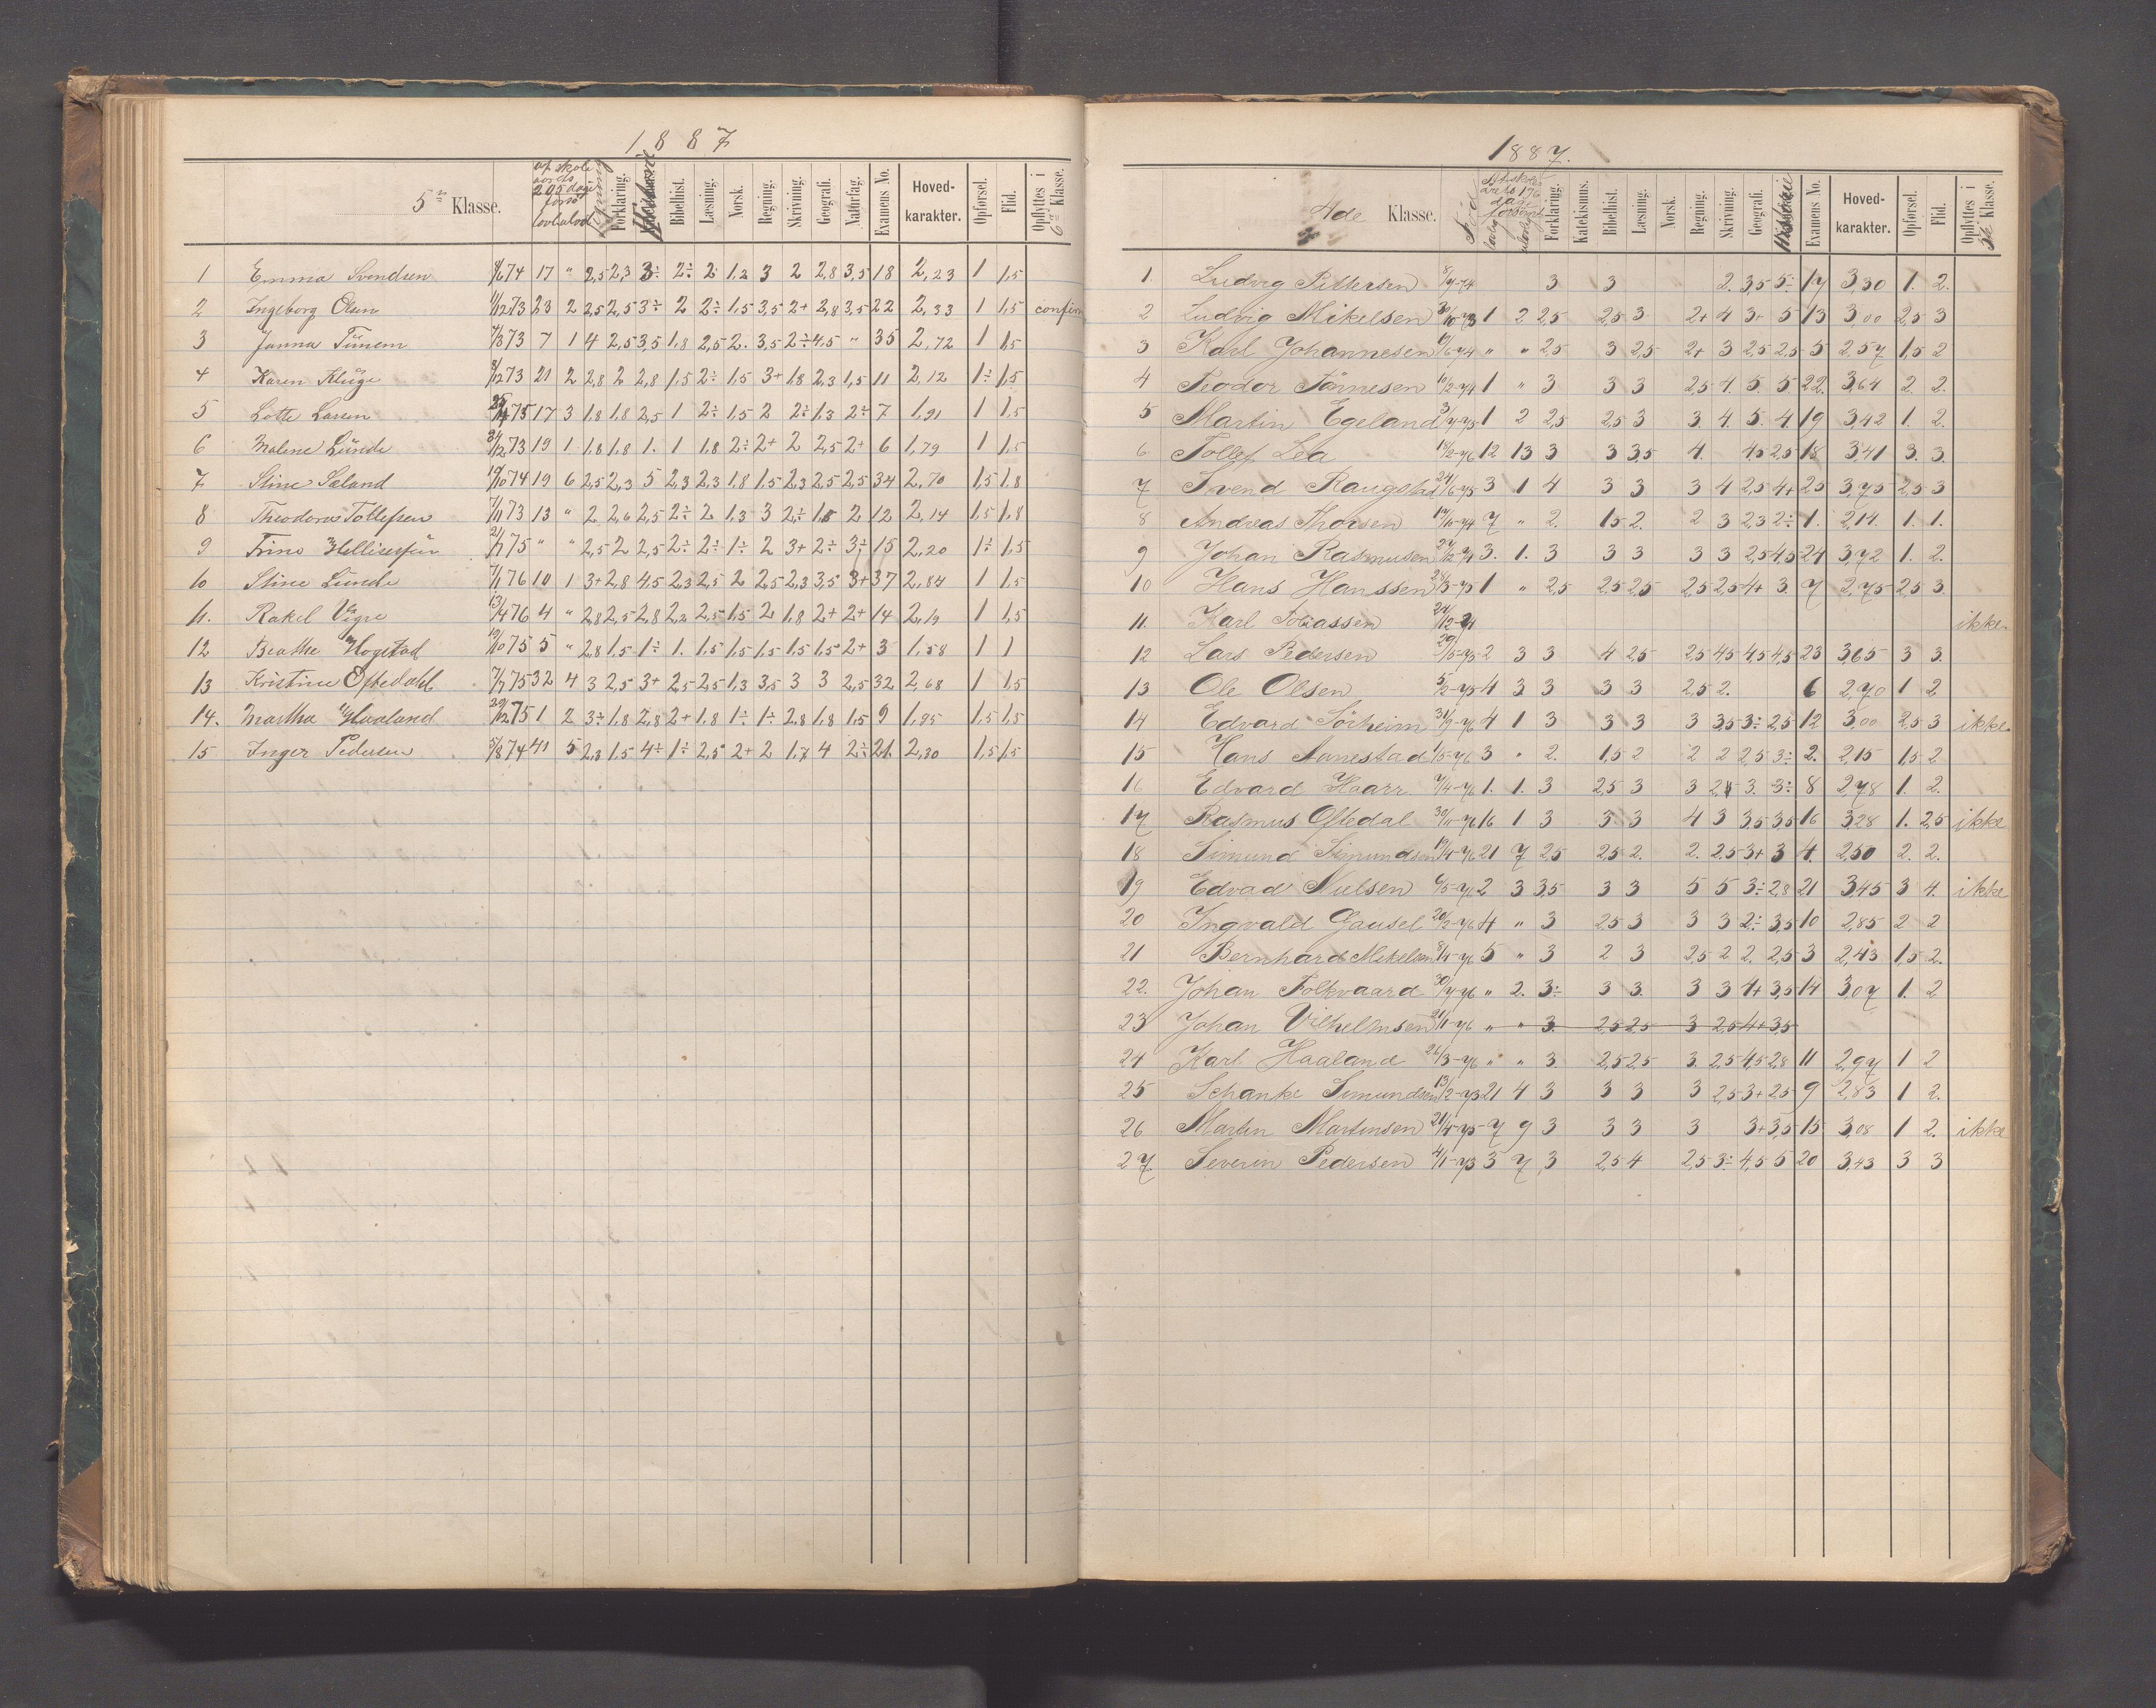 1887
5te Klasse. af skole aarets 205 dage fors. lovl. ulovl. Forklaring. Historie Bibelhist. Læsning. Norsk. Regning. Skrivning. Geografi. Naturfag. Examens No. Hoved-karakter. Opførsel. Flid. Opflyttes i 6te Klasse.
1 Emma Svendsen 8/6 74 17 " 2,5 2,3 3÷ 2÷ 2 1,2 3 2 2,8 3,5 18 2,23 1 1,5
2 Ingeborg Olsen 11/12 73 23 2 2,5 2,5 3÷ 2 2÷ 1,5 3,5 2+ 2,8 3,5 22 2,33 1 1,5 confirm
3 Janna Tünem 7/3 73 7 1 4 2,5 3,5 1,8 2,5 2. 3,5 2÷ 4,5 " 35 2,72 1 1,5
4 Karen Kluge 8/12 73 21 2 2,8 2 2,8 1,5 2÷ 1,5 3+ 1,8 2,3 1,5 11 2,12 1÷ 1,5
5 Lotte Larsen 25/4 75 17 3 1,8 1,8 2,5 1 2÷ 1,5 2 2÷ 1,3 2÷ 7 1,91 1 1,5
6 Malene Lünde 31/12 73 19 1 1,8 1,8 1. 1 1,8 2÷ 2+ 2 2,5 2+ 6 1,79 1 1,5
7 Stine Sæland 19/10 74 19 6 2,5 2,3 5 2,3 2,3 1,8 1,5 2,3 2,5 2,5 34 2,70 1,5 1,8
8 Theodora Tollefsen 7/11 73 13 " 2 2,6 2,5 2÷ 2 1,3 3 2÷ 1,8 2 12 2,14 1,5 1,8
9 Trine Hellisesen 21/7 75 " " 2,5 2 2,5 2÷ 2÷ 1÷ 2 3+ 2÷ 3÷ 15 2,20 1÷ 1,5
10 Stine Lunde 7/1 76 10 1 3+ 2,8 4,5 2,3 2,5 2 2,5 2,3 3,5 3+ 37 2,84 1 1,5
11. Rakel Vigre 13/4 76 4 " 2,8 2,5 2,8 2,2 2,5 1,5 2 1,8 2+ 2+ 14 2,19 1 1,5
12 Beathe Hogstad 19/10 75 5 " 2,8 1,5 1÷ 1. 1,5 1,5 1,5 1,5 1,5 2+ 3 1,58 1 1
13 Kristine Oftedahl 7/7 75 32 4 3 2,5 3+ 2,5 2,5 1,3 3,5 3 3 2,5 32 2,68 1 1,5
14. Martha Haaland 29/12 75 1 2 3÷ 1,8 2,8 2+ 1,8 1÷ 1÷ 2,8 1,8 1,5 9 1,95 1,5 1,5
15 Inger Pedersen 5/8 74 41 5 2,3 1,5 4÷ 1÷ 2,5 2+ 2 1,7 4 2÷ 21. 2,30 1,5 1,5
1887.
4de Klasse. Af skole aarets 196 dage forsømt Forklaring. Katekismus. Bibelhist. Læsning. Norsk. Regning. Skrivning. Geografi. Historie Examens No. Hoved-karakter. Opførsel. Flid. Opflyttes i 5te Klasse.
1. Ludvig Pettersen 8/7-74 3 3 2. 3,5 5÷ 17 3,30 1. 2.
2 Ludvig Mikelsen 30/10-73 1 2 2,5 2,5 3 2+ 4 3+ 5 13 3,00 2,5 3
3 Karl Johannesen 6/6-74 " " 2,5 3 2,5 2+ 3 2,5 2,5 5 2,57 1,5 2
4 Teodor Tønnesen 10/2-74 1 " 3 3 3 2,5 4. 5. 5. 22. 3,64 2. 2.
5 Martin Egeland 3/7-75 1 2 2,5 2,5 3 3. 4. 5. 4. 19 3,42 1. 2.
6. Tollef Lea 18/2-76 12 13 3 3 3,5 4. 4,5 2,5 18 3,41 3. 3.
7 Svend Raugstad 24/6-75 3 1 4 3 3 3 4 2,5 4+ 25 3,75 2,5 3
8 Andreas Thorsen 14/10-74 7 " 2. 1,5 2. 2 3 2,3 2÷ 1. 2,14. 1. 1.
9 Johan Rasmusen 27/12-71 3. 1. 3 3 3 3 3 2,5 4,5 24 3,72 1. 2.
10 Hans Hanssen 21/3-75 1 " 2,5 2,5 2,5 2,5 2,5 4+ 3. 7 2,75 2,5 3.
11. Karl Tobiassen 24/12-71 ikke.
12 Lars Pedersen 20/5-73 2 3 3 4 2,5 2,5 4,5 4,5 4,5 23 3,65 3 3.
13 Ole Olsen 5/2-75 4 3 3 3 3 2,5 2. 6 2,70 1 2
14 Edvard Sørheim 31/9-76 4 1 3 3 3 3 3,5 3÷ 2,5 12 3,00 2,5 3 ikke.
15 Hans Aanestad 1/5-76 3 " 2. 1,5 2 2 2 2,5 3÷ 2. 2,15 1,5 2
16 Edvard Haarr 7/4-76 1. 1. 3 2,5 3 3 2,8 3. 3÷ 8 2,78 1. 2.
17 Rasmus Oftedal 30/11-76 16 1 3 3. 3 4 3 3,5 3,5 16 3,28 1. 2,5 ikke
18 Simund Simundsen 19/4-76 21 7 2,5 2,5 2. 2. 2,5 3+ 3 4. 2,50 2. 2.
19 Edvad Nielsen 6/5-76 2 3 3,5 3 3 5 5 3÷ 2,8 21 3,45 3 4. ikke
20 Ingvald Gausel 20/2-76 4 " 3 2,5 3 3 3 2÷ 3,5 10 2,85 2 2
21 Bernhard Mikelsen 8/4-76 5 " 3 2 3 2,5 2 2. 2,5 3 2,43 1,5 2.
22. Johan Folkvaard 30/7-76 " 2. 3÷ 3 3. 3 3 4+ 3,5 14 3,07 1. 2
23 Johan Vilhelmsen 21/1-76 " " 3. 2,5 2,5 3 2,5 4+ 3,5
24 Karl Haaland 26/3-76 " " 3. 2,5 2,5 3. 2,5 4,5 2,8 11 2,97 1 2
25 Schanke Simundsen 13/2-73 21 4 3 3 3 3 2,5 3+ 2,5 9 2,83 1 2.
26 Martin Martinsen 21/4-75 7 9 3 3 3 3 3+ 3,5 15 3,08 1 2. ikke
27 Severin Pedersen 4/1-73 3 7 3 2,5 4 2,5 3÷ 4,5 5 20 3,43 3 3